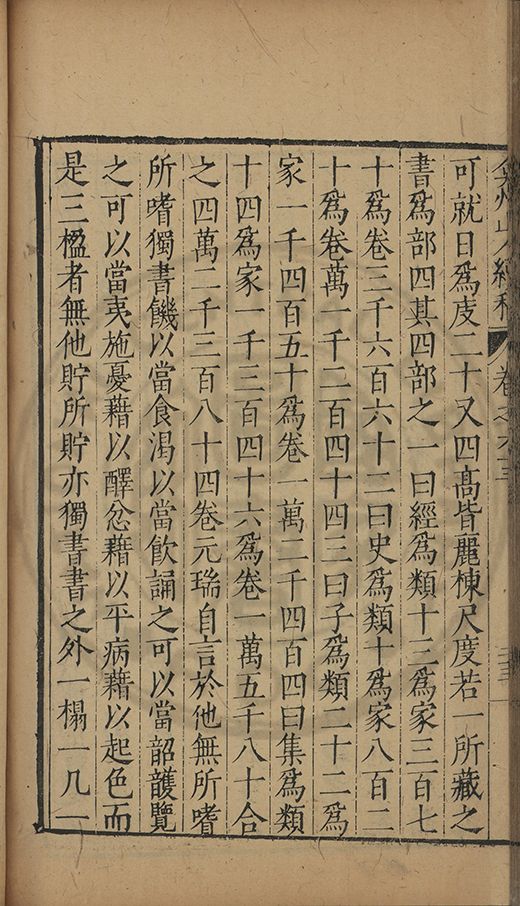 弇州山人續稿 卷之六三
可就日爲庋二十又四髙皆麗棟尺度若一所藏之
書爲部四其四部之一曰經爲類十三爲家三百七
十爲卷三千六百六十二曰史爲類十爲家八百二
十爲卷萬一千二百四十四三曰子爲類二十二爲
家一千四百五十爲卷一萬二千四百四曰集爲類
十四爲家一千三百四十六爲卷一萬五千八十合
之四萬二千三百八十四卷元瑞自言於他無所嗜
所嗜獨書饑以當食渴以當飲誦之可以當韶頀覽
之可以當夷施憂藉以醳忿藉以平病藉以起色而
是三楹者無他貯所貯亦獨書書之外一榻一几一